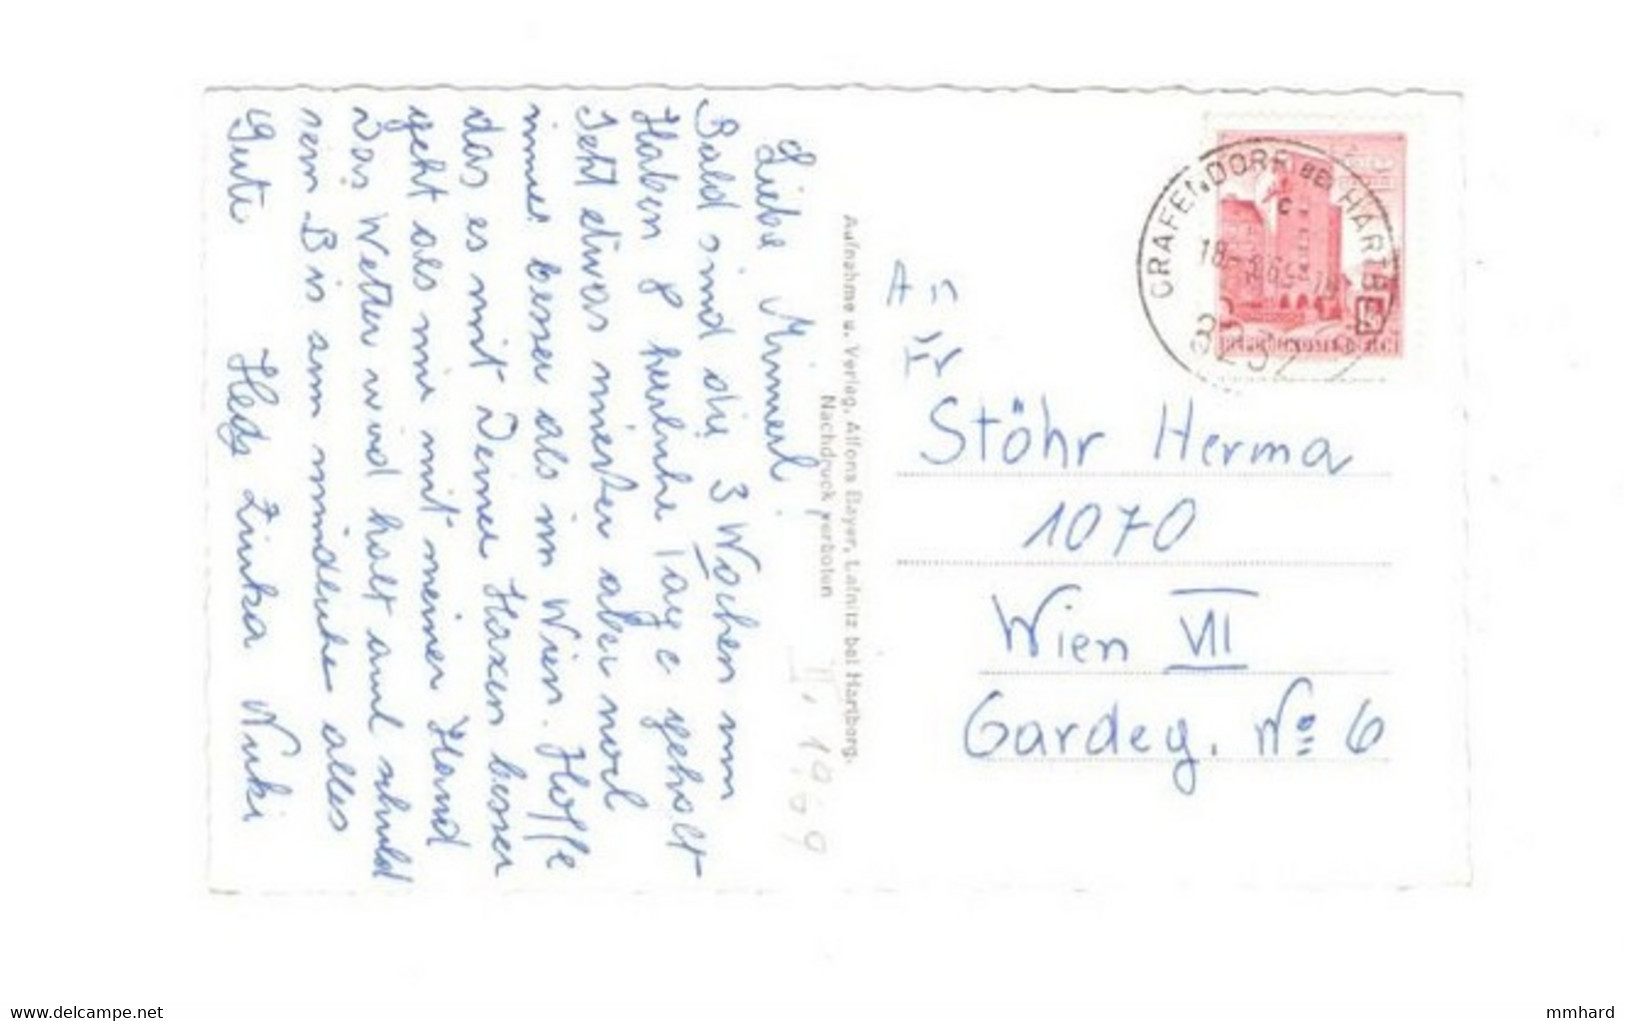 Liebe Minnerl!
Bald sind die 3 Wochen um
Haben 8 herrliche Tage gehabt
Jetzt etwas mieser aber noch
immer besser als in Wien. Hoffe
das es mit Deinen Haxen besser
geht als mir mit meiner Hand
Das Wetter wird halt auch schuld
sein. Bis am
alles
Gute Hedy Nuki
Aufnahme u. Verlag, Alfons Bayer, Lafnitz bei Hartberg.
Nachdruck verboten
II. 1969
GRAFENDORF BEI HARTBERG
c
An
Stöhr Herma
1070
Wien VII
Gardeg. No 6
mmhard
delcampe.net